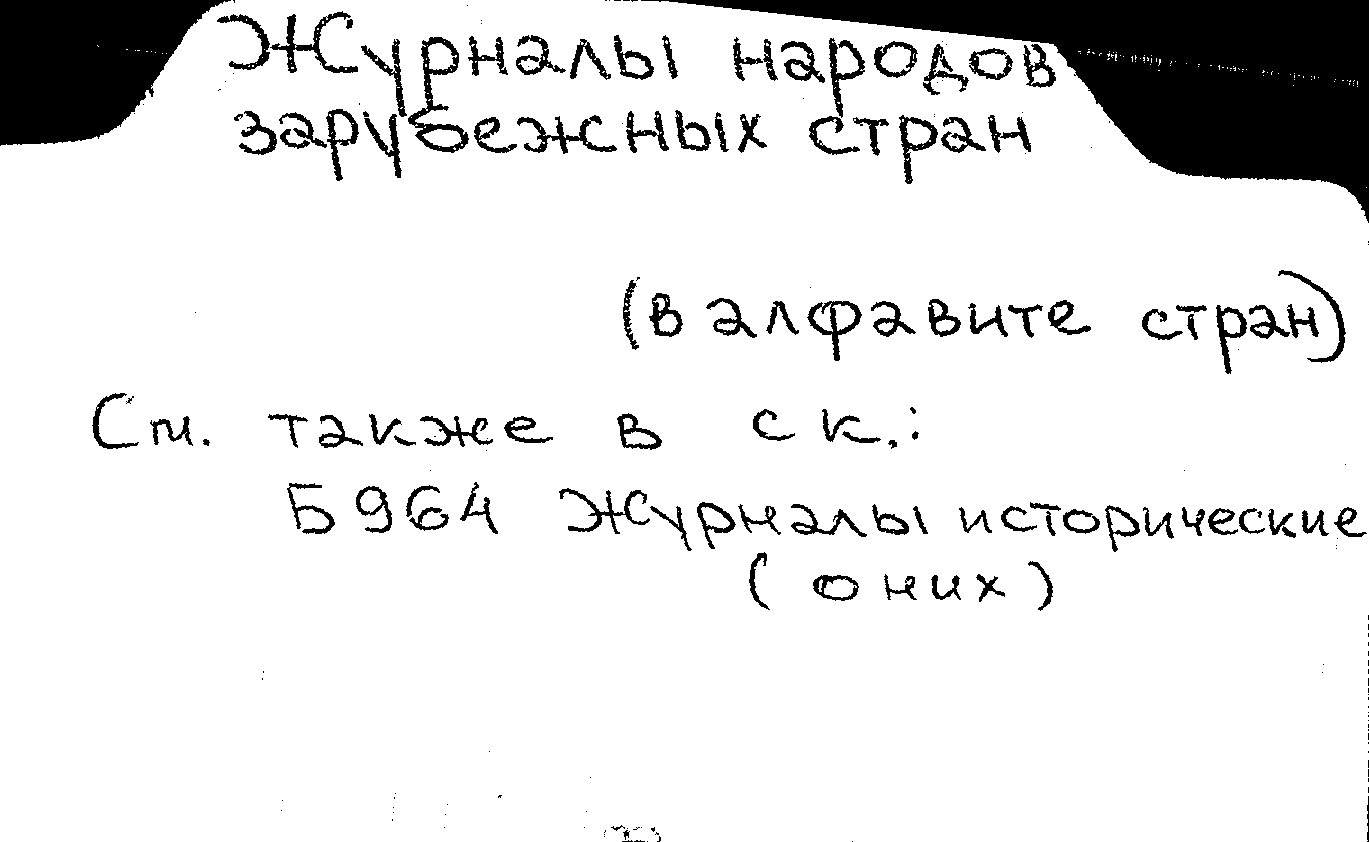 Журналы народов
зарубежных стран
(в алфавите стран)
См. также в ск.:
Б964 Журналы исторические
(о них)